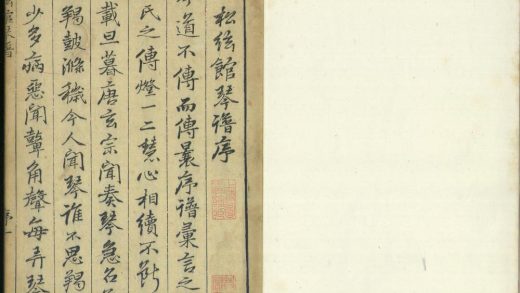 松絃館琴譜序
道不傳而傳曩序譜彙言之
氏之傳燈一二慧心相續不斷
載旦暮唐玄宗聞奏琴急召
羯鼓滌穢今人聞琴誰不思羯
少多病惡聞鼙角聲每弄琴
館琴譜
序一